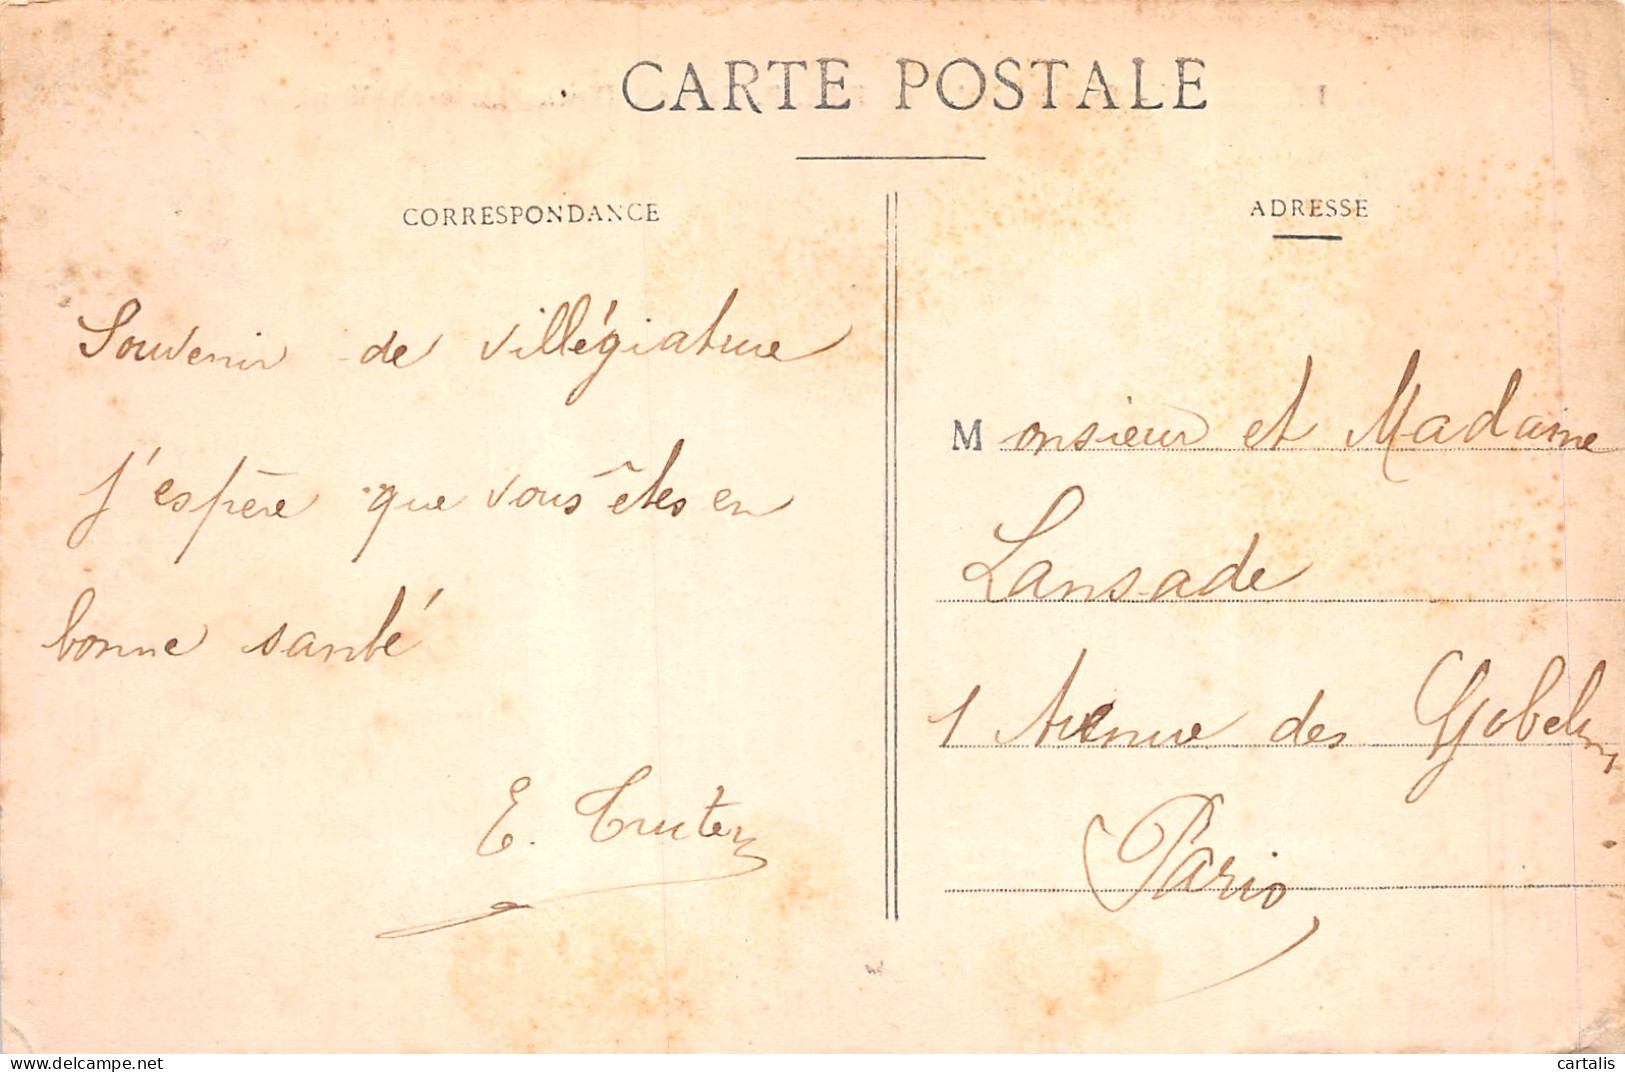 CARTE POSTALE
CORRESPONDANCE
Souvenir de villégiature
J'espère que vous êtes en
bonne santé
E.
ADRESSE
Monsieur et Madame
Lansade
1 Avenue des Gobelins
Paris
delcampe.net
cartalis